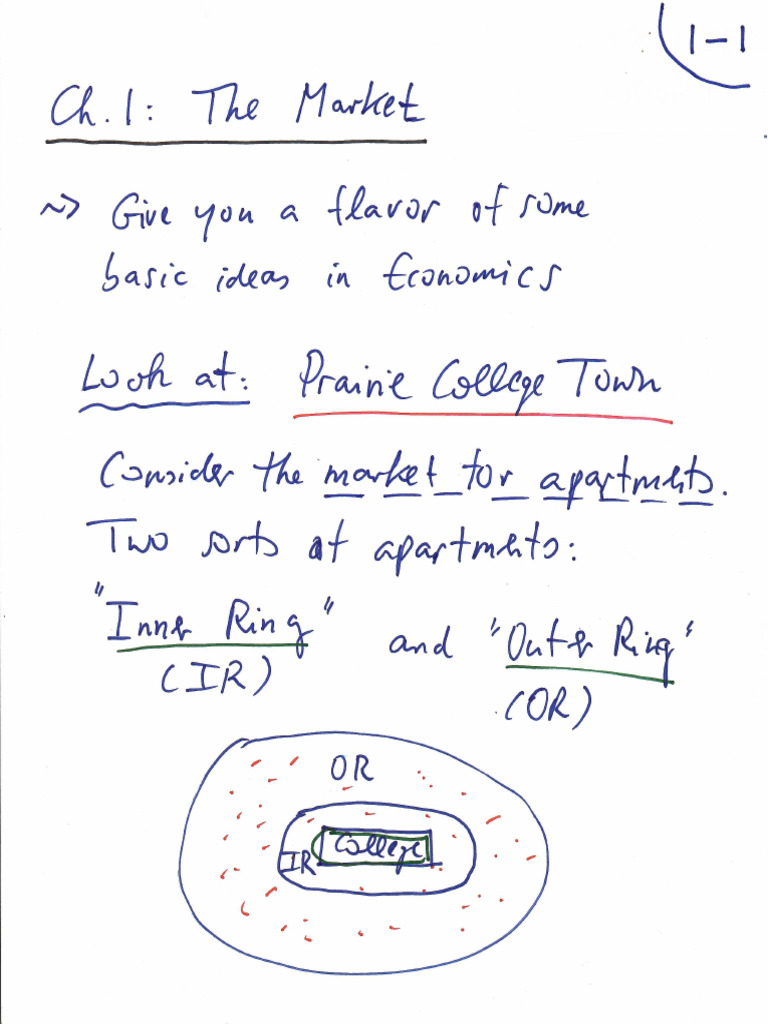 1-1
Ch. 1: The Market
~> Give you a flavor of some
basic ideas in Economics
Look at: Prairie College Town
Consider the market for apartments.
Two sorts of apartments:
"Inner Ring" and "Outer Ring"
(IR) (OR)
OR
College
IR